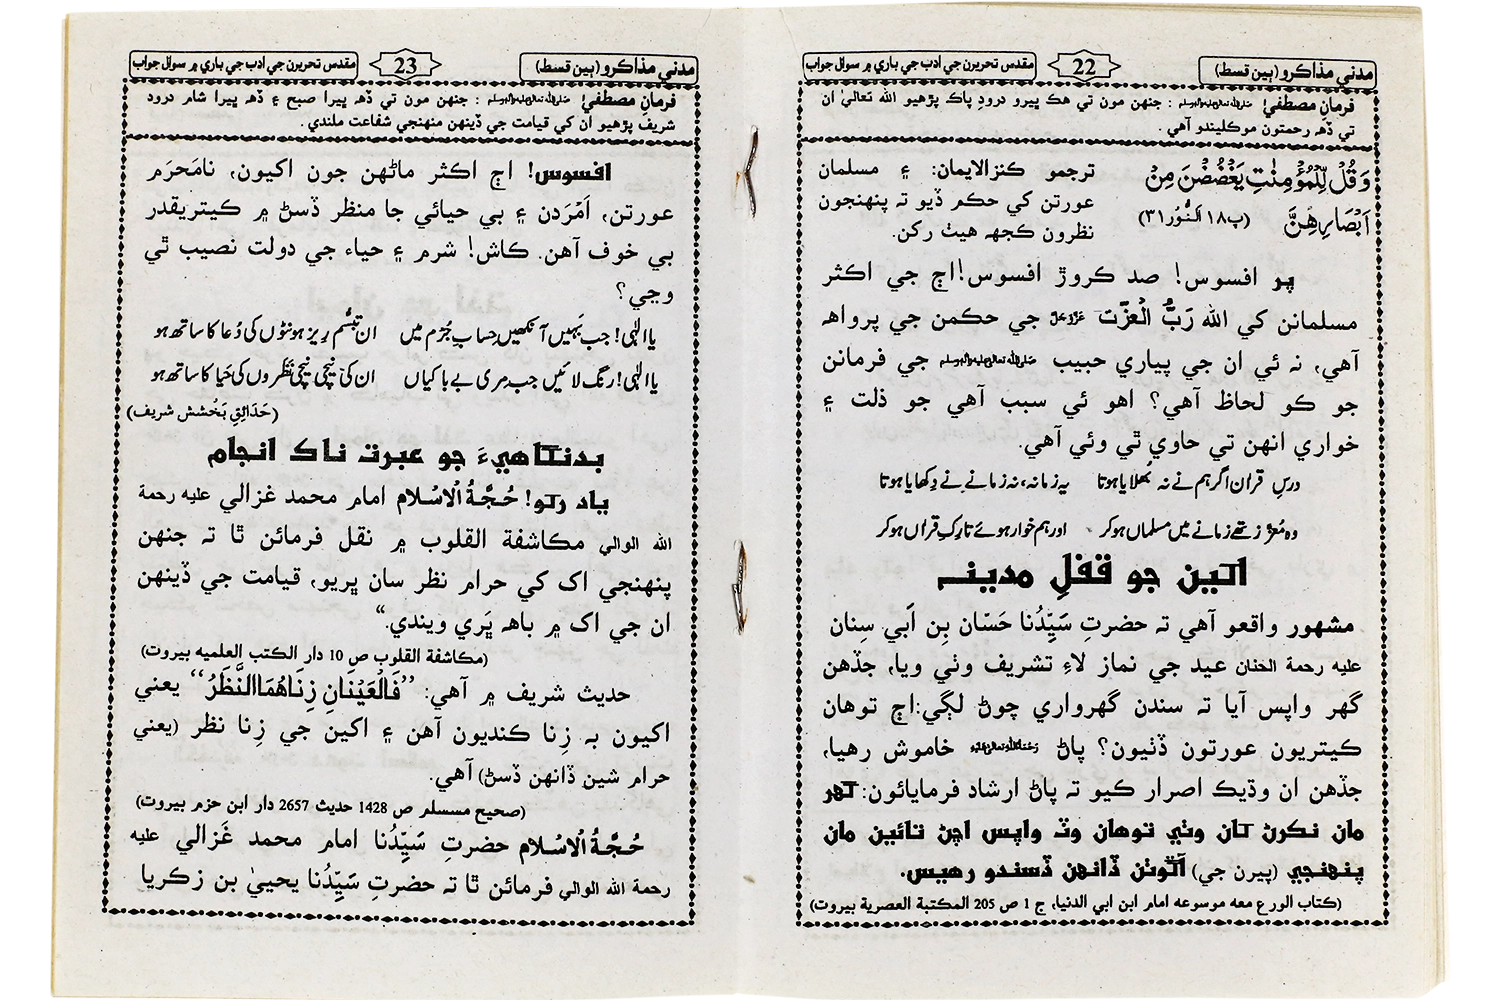 مدني مذاڪرو (ٻين قسط)
22
مقدس تحريرن جي ادب جي باري ۾ سوال جواب
فرمانِ مصطفيٰ صلى الله تعالى عليه واله وسلم : جنهن مون تي هڪ ڀيرو درودِ پاڪ پڙهيو الله تعاليٰ ان
تي ڏهه رحمتون موڪليندو آهي .
وَقُلْ لِّلْمُؤْمِنٰتِ يَغْضُضْنَ مِنْ
اَبْصَارِهِنَّ (پ١٨ اَلنُّوْر٣١)
ترجمو ڪنزالايمان: ۽ مسلمان
عورتن کي حڪم ڏيو ته پنهنجون
نظرون ڪجهه هيٺ رکن.
پر افسوس! صد ڪروڙ افسوس!اڄ جي اڪثر
مسلمانن کي الله رَبُّ الْعِزَّت عزوجل جي حڪمن جي پرواهه
آهي، نه ئي ان جي پياري حبيب صلى الله تعالى عليه واله وسلم جي فرمانن
جو ڪو لحاظ آهي؟ اهو ئي سبب آهي جو ذلت ۽
خواري انهن تي حاوي ٿي وئي آهي.
درسِ قرآن اگر ہم نے نہ بُھلایا ہوتا یہ زمانہ، نہ زمانے نے دِکھایا ہوتا
وہ مُعزَّز تھے زمانے میں مسلماں ہو کر اور ہم خوار ہوئے تارِکِ قرآں ہو کر
اکين جو قفلِ مدينه
مشهور واقعو آهي ته حضرتِ سَيِّدُنا حَسّان بِن اَبي سِنان
عليه رحمة الحنان عيد جي نماز لاءِ تشريف وٺي ويا، جڏهن
گهر واپس آيا ته سندن گهرواري چوڻ لڳي:اڄ توهان
ڪيتريون عورتون ڏٺيون؟ پاڻ رحمة الله تعالى عليه خاموش رهيا،
جڏهن ان وڌيڪ اصرار ڪيو ته پاڻ ارشاد فرمايائون: گهر
مان نڪرڻ کان وٺي توهان وٽ واپس اچڻ تائين مان
پنهنجي (پيرن جي) آڱوٺن ڏانهن ڏسندو رهيس.
(ڪتاب الورع معه موسوعه امام ابن ابي الدنيا، ج 1 ص 205 المڪتبة العصرية بيروت)
مدني مذاڪرو (ٻين قسط)
23
مقدس تحريرن جي ادب جي باري ۾ سوال جواب
فرمانِ مصطفيٰ صلى الله تعالى عليه واله وسلم : جنهن مون تي ڏهه ڀيرا صبح ۽ ڏهه ڀيرا شام درود
شريف پڙهيو ان کي قيامت جي ڏينهن منهنجي شفاعت ملندي.
افسوس! اڄ اڪثر ماڻهن جون اکيون، نامَحرَم
عورتن، اَمْرَدن ۽ بي حيائي جا منظر ڏسڻ ۾ ڪيتريقدر
بي خوف آهن. ڪاش! شرم ۽ حياء جي دولت نصيب ٿي
وڃي؟
یا الٰہی! جب بَہیں آنکھیں حِسابِ جُرم میں ان تبسُّم ریز ہونٹوں کی دُعا کا ساتھ ہو
یا الٰہی! رنگ لائیں جب مِری بے باکیاں ان کی نیچی نیچی نَظَروں کی حَیا کا ساتھ ہو
(حَدائقِ بَخْشش شريف)
بدنگاهيءَ جو عبرت ناڪ انجام
ياد رکو! حُجَّةُ الْاِسْلام امام محمد غزالي عليه رحمة
الله الوالي مڪاشفة القلوب ۾ نقل فرمائن ٿا ته جنهن
پنهنجي اک کي حرام نظر سان ڀريو، قيامت جي ڏينهن
ان جي اک ۾ باهه ڀَري ويندي.“
(مڪاشفة القلوب ص 10 دار الڪتب العلميه بيروت)
حديث شريف ۾ آهي: ’’فَالْعَيْنَانِ زِنَاهُمَا النَّظَرُ‘‘ يعني
اکيون به زِنا ڪنديون آهن ۽ اکين جي زِنا نظر (يعني
حرام شين ڏانهن ڏسڻ) آهي.
(صحيح مسسلم ص 1428 حديث 2657 دار ابن حزم بيروت)
حُجَّةُ الْاِسْلام حضرتِ سَيِّدُنا امام محمد غَزالي عليه
رحمة الله الوالي فرمائن ٿا ته حضرتِ سَيِّدُنا يحييٰ بن زڪريا